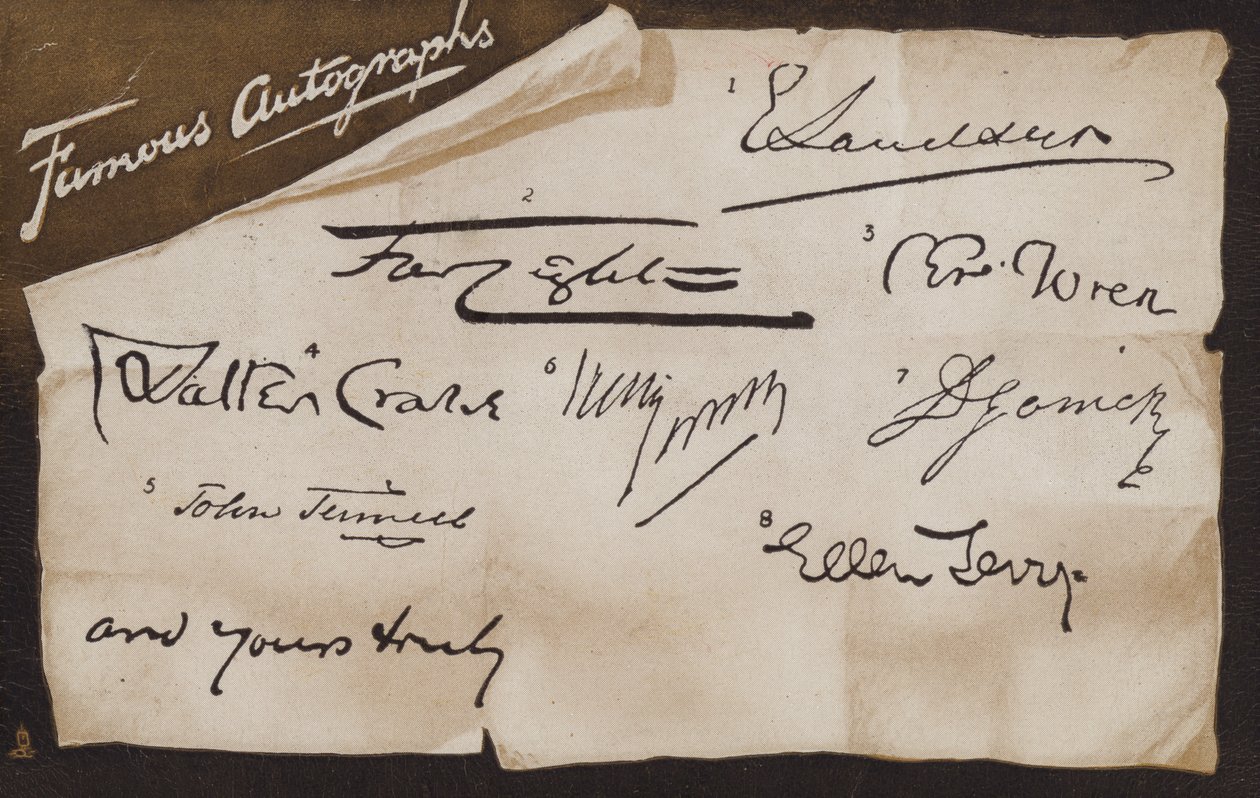 Famous Autographs
1 E Landseer
2
3 Chr. Wren
4 Walter Crane
5 John Tenniel
6
7 D Garrick
8 Ellen Terry
and yours truly